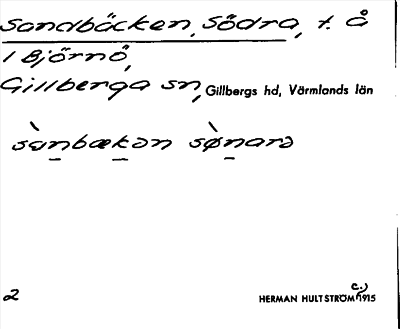 Sandbäcken, Södra, t. å
i Björnö,
Gillberga sn, Gillbergs hd, Värmlands län
sànbækən sø̀narə
2 HERMAN HULTSTRÖM c.) 1915